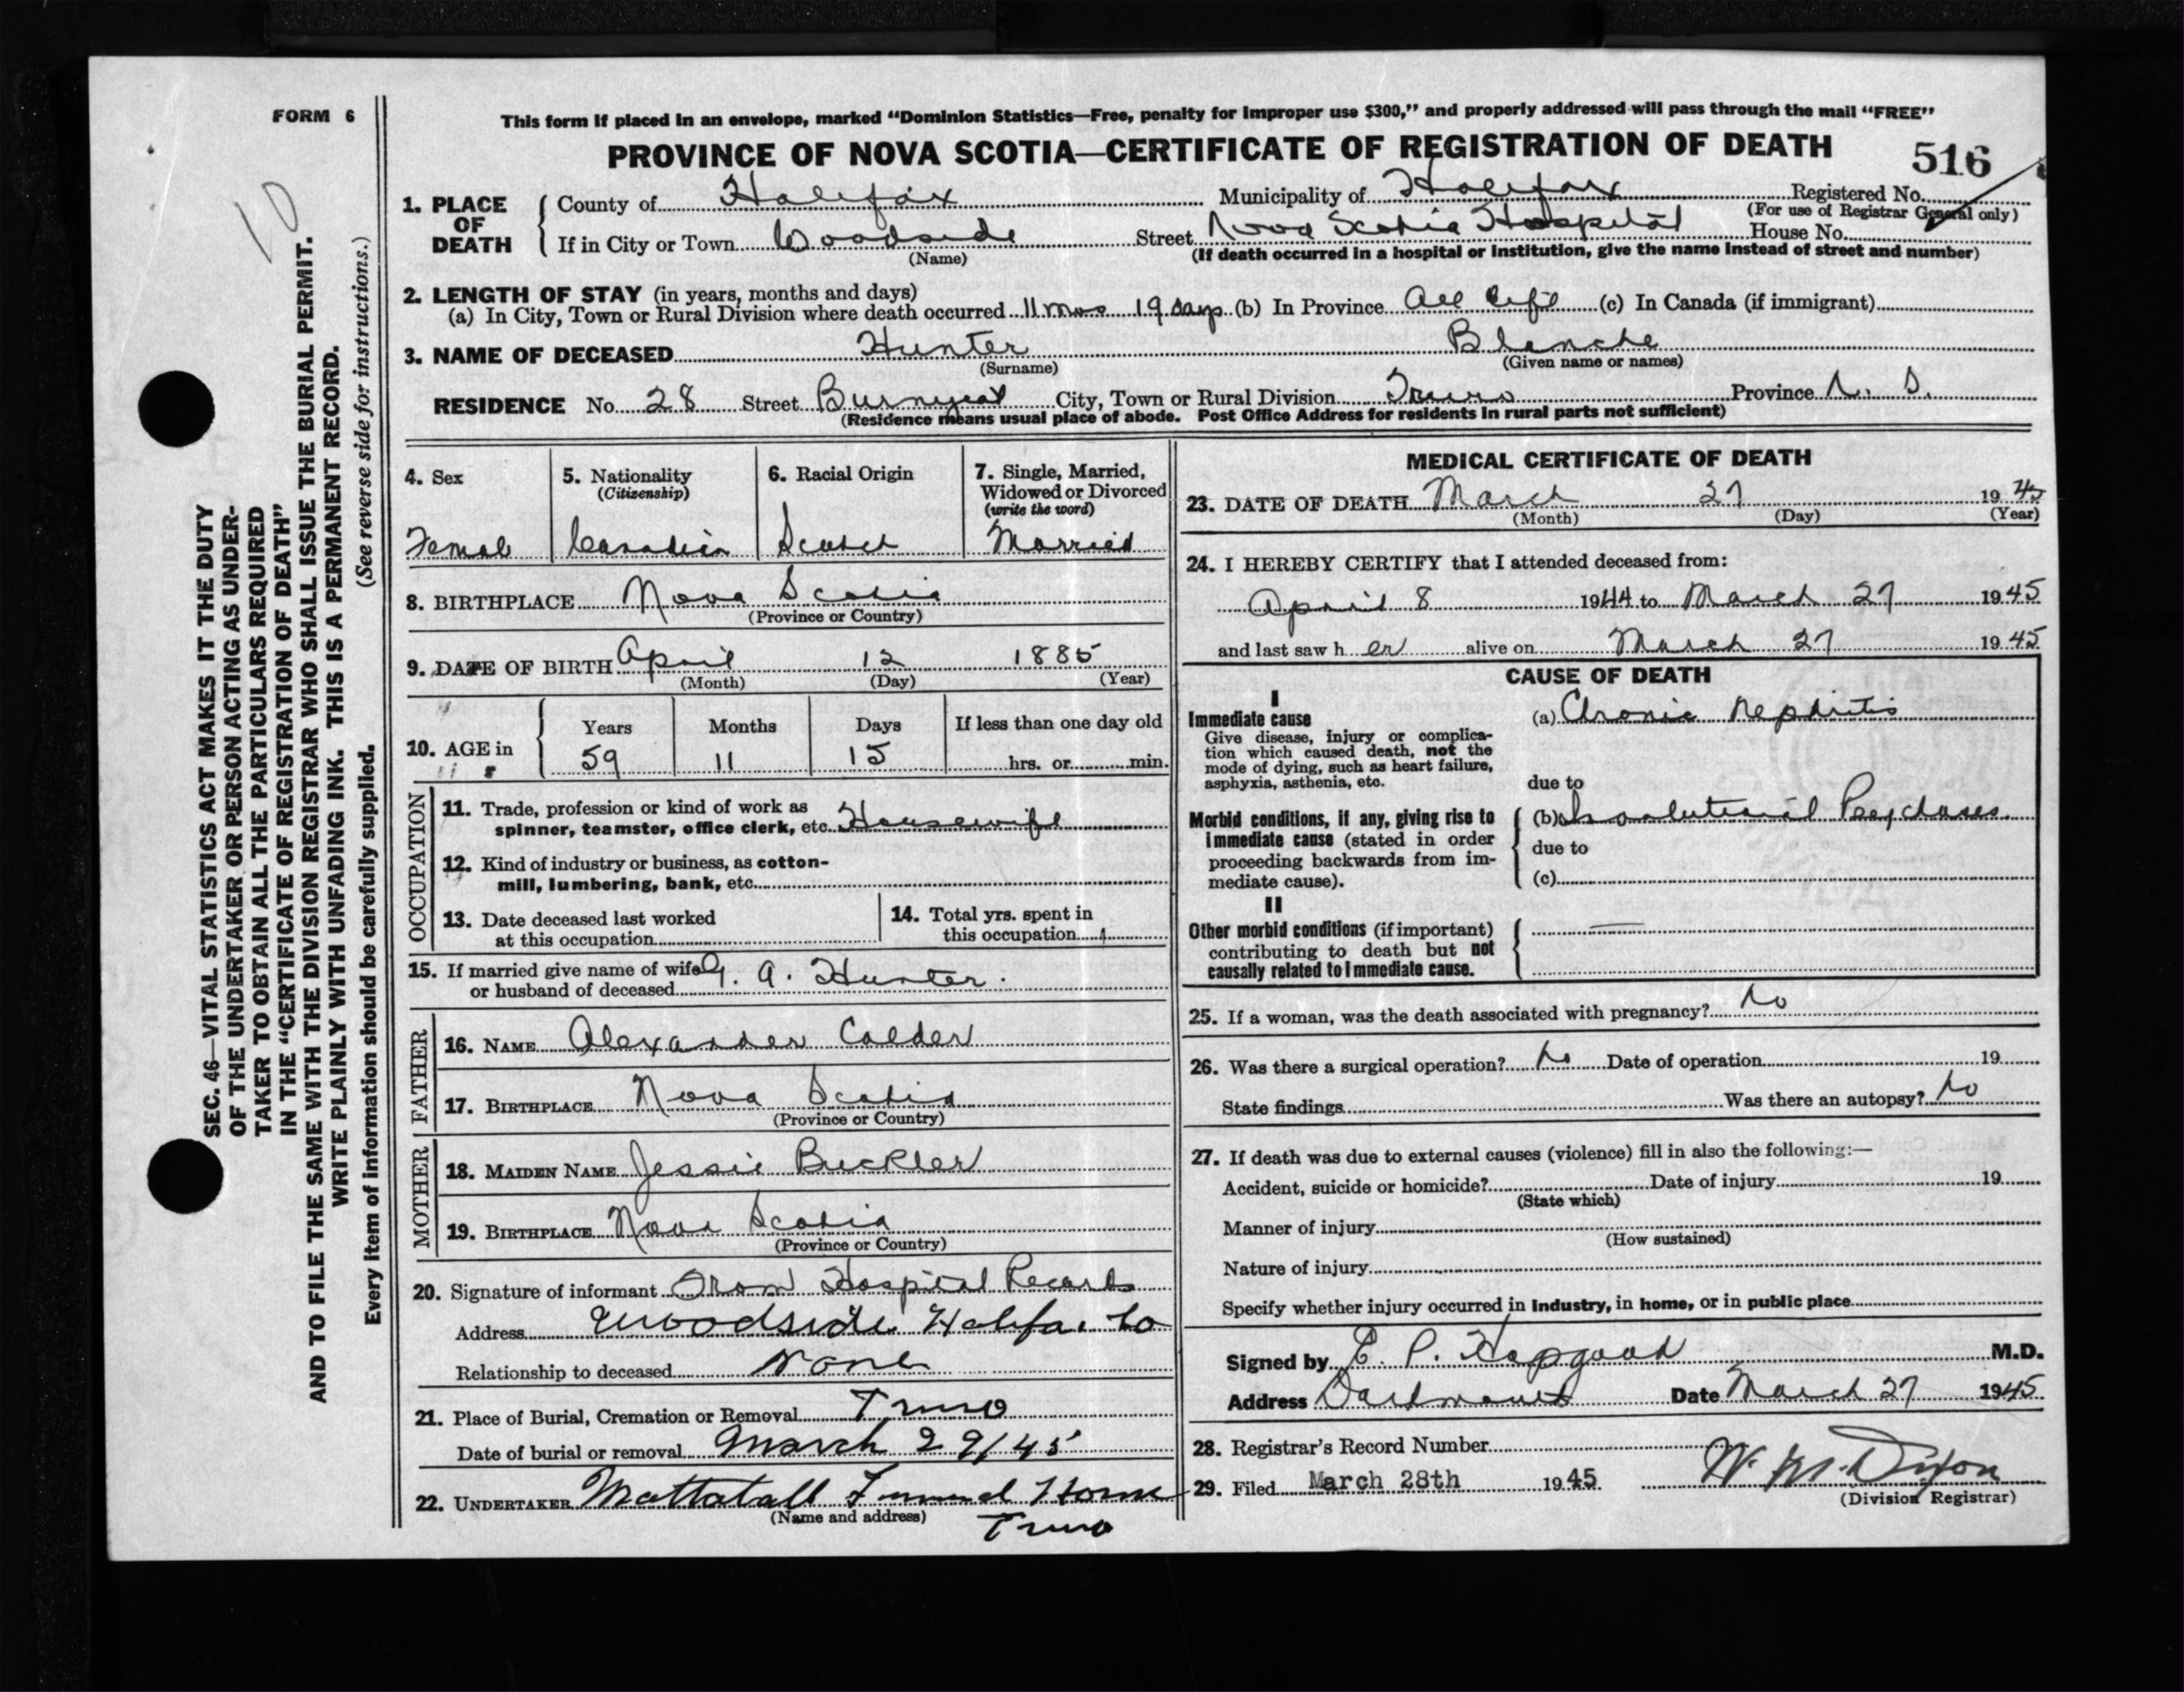 FORM 6
This form if placed in an envelope, marked “Dominion Statistics—Free, penalty for improper use $300,” and properly addressed will pass through the mail “FREE”
PROVINCE OF NOVA SCOTIA—CERTIFICATE OF REGISTRATION OF DEATH
516
10
SEC. 46—VITAL STATISTICS ACT MAKES IT THE DUTY
OF THE UNDERTAKER OR PERSON ACTING AS UNDER-
TAKER TO OBTAIN ALL THE PARTICULARS REQUIRED
IN THE “CERTIFICATE OF REGISTRATION OF DEATH”
AND TO FILE THE SAME WITH THE DIVISION REGISTRAR WHO SHALL ISSUE THE BURIAL PERMIT.
WRITE PLAINLY WITH UNFADING INK. THIS IS A PERMANENT RECORD.
(See reverse side for instructions.)
Every item of information should be carefully supplied.
1. PLACE OF DEATH
County of Halifax Municipality of Halifax Registered No.
(For use of Registrar General only)
If in City or Town Woodside Street Nova Scotia Hospital House No.
(Name) (If death occurred in a hospital or institution, give the name instead of street and number)
2. LENGTH OF STAY (in years, months and days)
(a) In City, Town or Rural Division where death occurred 11 mos 19 days (b) In Province All life (c) In Canada (if immigrant)
3. NAME OF DECEASED Hunter Blanche
(Surname) (Given name or names)
RESIDENCE No. 28 Street Burnyeat City, Town or Rural Division Truro Province N. S.
(Residence means usual place of abode. Post Office Address for residents in rural parts not sufficient)
4. Sex
Female
5. Nationality
(Citizenship)
Canadian
6. Racial Origin
Scotch
7. Single, Married,
Widowed or Divorced
(write the word)
Married
8. BIRTHPLACE Nova Scotia
(Province or Country)
9. DATE OF BIRTH April 12 1885
(Month) (Day) (Year)
10. AGE in
Years Months Days If less than one day old
59 11 15 hrs. or min.
OCCUPATION
11. Trade, profession or kind of work as
spinner, teamster, office clerk, etc. Housewife
12. Kind of industry or business, as cotton-
mill, lumbering, bank, etc.
13. Date deceased last worked
at this occupation
14. Total yrs. spent in
this occupation
15. If married give name of wife G. A. Hunter.
or husband of deceased
FATHER
16. NAME Alexander Calder
17. BIRTHPLACE Nova Scotia
(Province or Country)
MOTHER
18. MAIDEN NAME Jessie Buckler
19. BIRTHPLACE Nova Scotia
(Province or Country)
20. Signature of informant From Hospital Records
Address Woodside Halifax Co
Relationship to deceased None
21. Place of Burial, Cremation or Removal Truro
Date of burial or removal March 29/45
22. UNDERTAKER Mattatall Funeral Home
(Name and address) Truro
MEDICAL CERTIFICATE OF DEATH
23. DATE OF DEATH March 27 1945
(Month) (Day) (Year)
24. I HEREBY CERTIFY that I attended deceased from:
April 8 1944 to March 27 1945
and last saw h er alive on March 27 1945
CAUSE OF DEATH
I
Immediate cause
Give disease, injury or complica-
tion which caused death, not the
mode of dying, such as heart failure,
asphyxia, asthenia, etc.
(a) Chronic Nephritis
due to
Morbid conditions, if any, giving rise to
immediate cause (stated in order
proceeding backwards from im-
mediate cause).
(b) Involutional Psychoses.
due to
(c)
II
Other morbid conditions (if important)
contributing to death but not
causally related to immediate cause.
25. If a woman, was the death associated with pregnancy? No
26. Was there a surgical operation? No Date of operation 19
State findings Was there an autopsy? No
27. If death was due to external causes (violence) fill in also the following:—
Accident, suicide or homicide? Date of injury 19
(State which)
Manner of injury
(How sustained)
Nature of injury
Specify whether injury occurred in industry, in home, or in public place
Signed by E. P. Hapgood M.D.
Address Dartmouth Date March 27 1945
28. Registrar's Record Number
29. Filed March 28th 1945 W. M. Dixon
(Division Registrar)